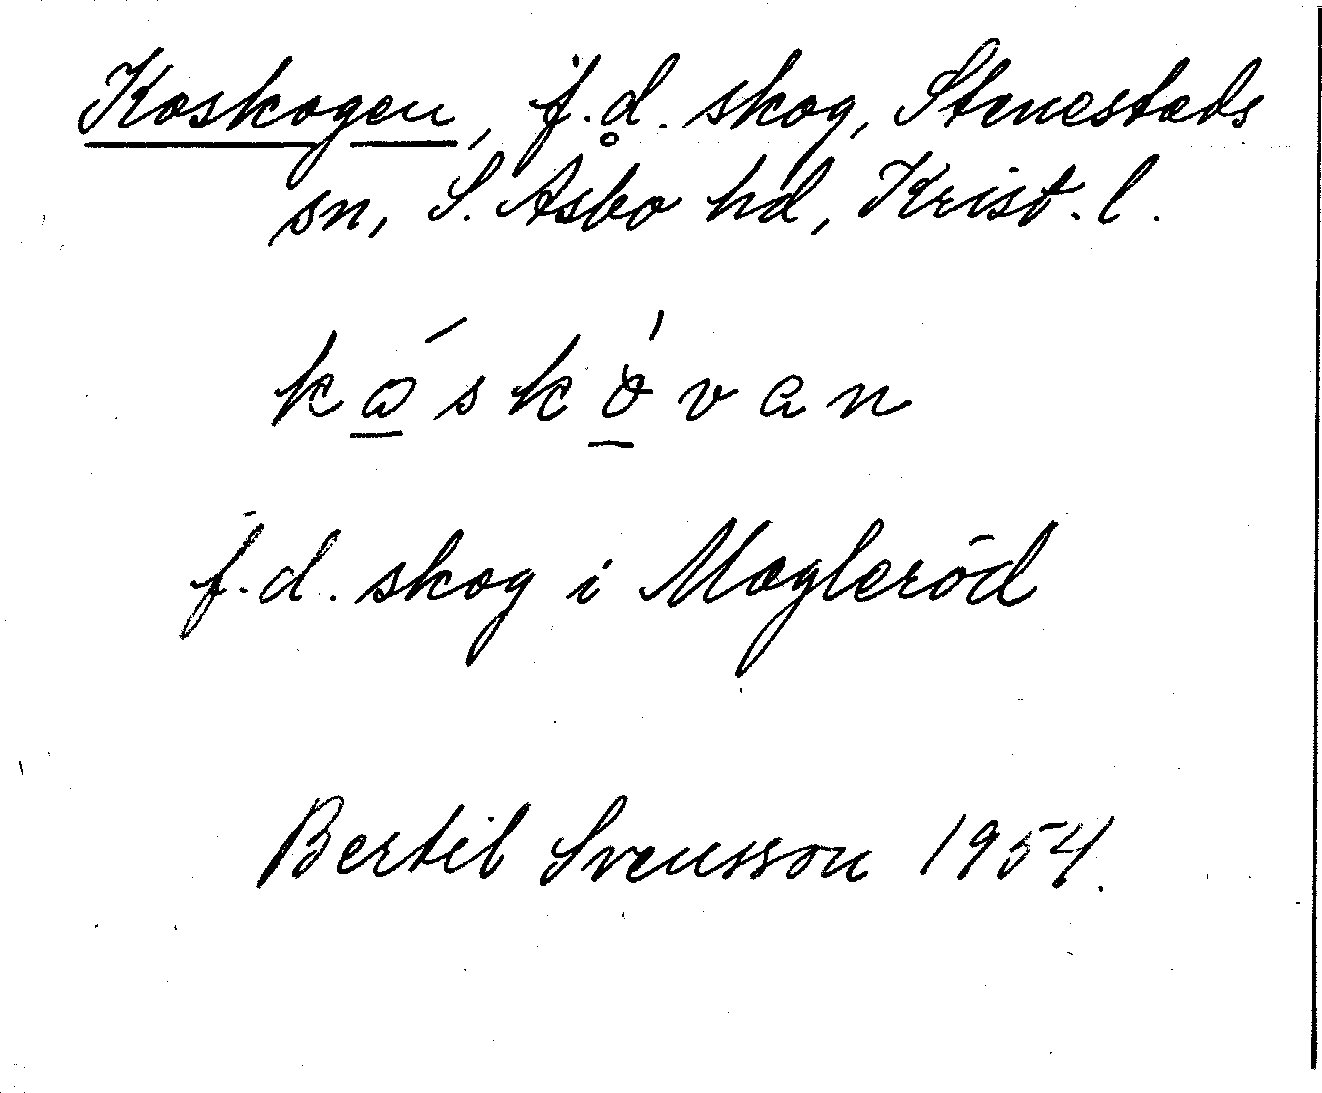 Koskogen, f.d. skog, Stenestads
sn, S. Åsbo hd, Krist. l.
kóskòvan
f.d. skog i Magleröd
Bertil Svensson 1954.